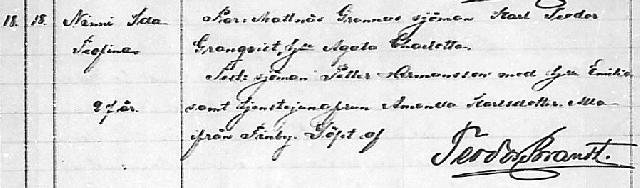 18. 18. Nanni Ida Par. Mattnäs Grannas sjöman Karl Teodor
Teofina. Granqvist, hu Agata Charlotta.
Test. sjöman Petter Hermansson med hu Emilia
27 år. samt tjenstejungfrun Amanda Karlsdotter, alla
från Finby. Döpt af
Teodor Brandt.